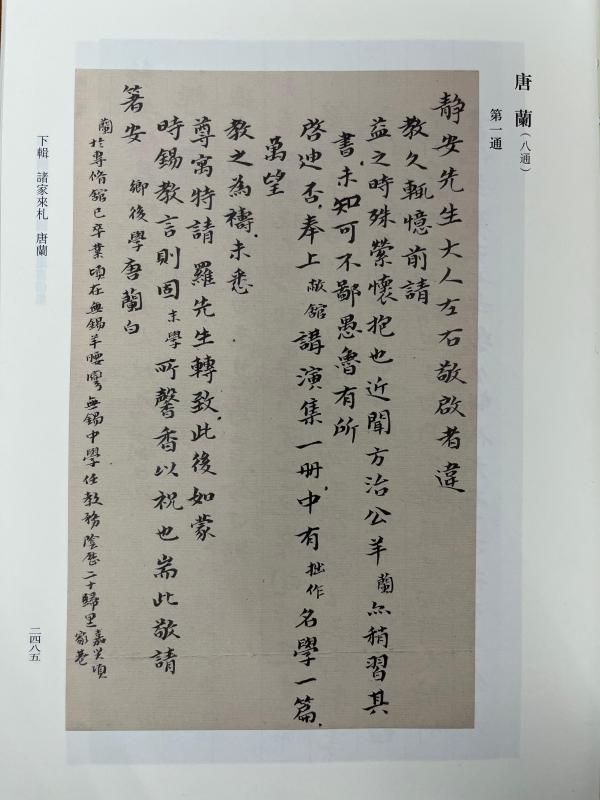 唐蘭（八通）
第一通
靜安先生大人左右敬啟者違
教久輒憶前請
益之時殊縈懷抱也近聞方治公羊蘭亦稍習其
書未知可不鄙愚魯有所
啓迪否奉上敝館講演集一冊中有拙作名學一篇
萬望
教之為禱未悉
尊寓特請羅先生轉致此後如蒙
時錫教言則固末學所馨香以祝也耑此敬請
箸安 鄉後學唐蘭白
蘭於專脩館已卒業頃在無錫羊腰灣無錫中學任教務陰歷二十歸里嘉興項家巷
下輯 諸家來札 唐蘭
二四八五